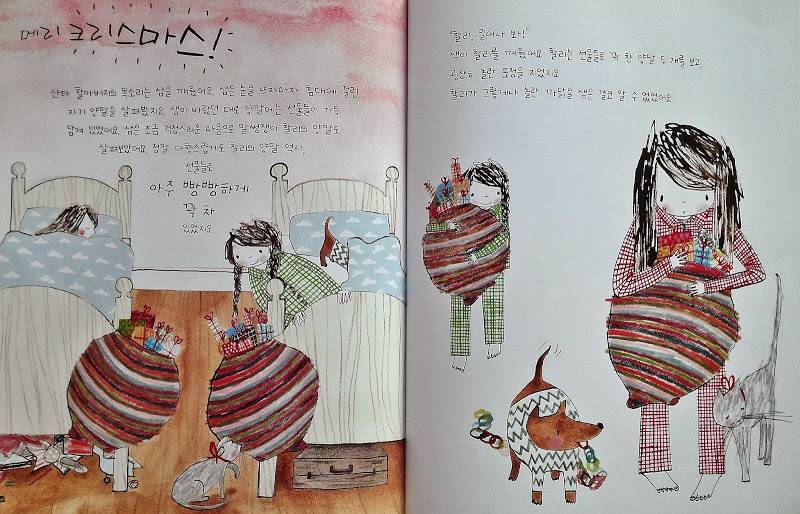 메리 크리스마스!
산타 할아버지의 목소리는 샘을 깨웠어요. 샘은 눈을 뜨자마자 침대에 걸린
자기 양말을 살펴봤지요. 샘이 바랐던 대로 양말에는 선물들이 가득
담겨 있었어요. 샘은 조금 걱정스러운 마음으로 말썽쟁이 찰리의 양말도
살펴보았어요. 정말 다행스럽게도 찰리의 양말 역시,
선물들로
아주 빵빵하게
꽉 차
있었지요
"찰리, 일어나 보니!"
샘이 찰리를 깨웠어요. 찰리는 선물들로 꽉 찬 양말 두 개를 보고,
굉장히 놀란 표정을 지었지요.
찰리가 그렇게나 놀란 까닭을 샘은 결코 알 수 없었어요.